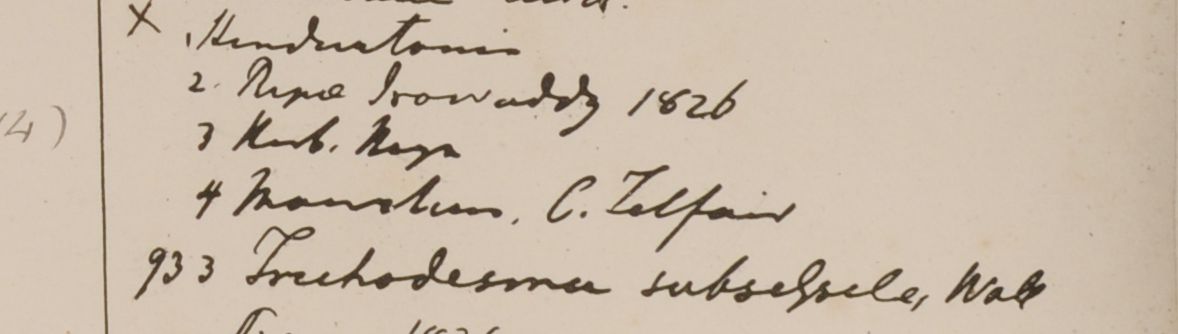 X 1 Hindustania
2. Ripae Irowaddy 1826
3 Herb. Heyn
4 Mauritius, C. Telfair
933 Trichodesma subsessile, Wall
1826